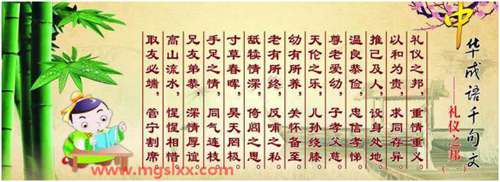 中华成语千句文
——礼仪之邦
礼仪之邦，重情重义
以和为贵，求同存异
推己及人，设身处地
温良恭俭，忠信孝悌
尊老爱幼，子孝父慈
天伦之乐，儿孙绕膝
幼有所养，关怀备至
老有所终，反哺之私
舐犊情深，倚闾之思
寸草春晖，昊天罔极
手足之情，同气连枝
兄友弟恭，深情厚谊
高山流水，惺惺相惜
取友必端，管宁割席
www.mgslxx.com